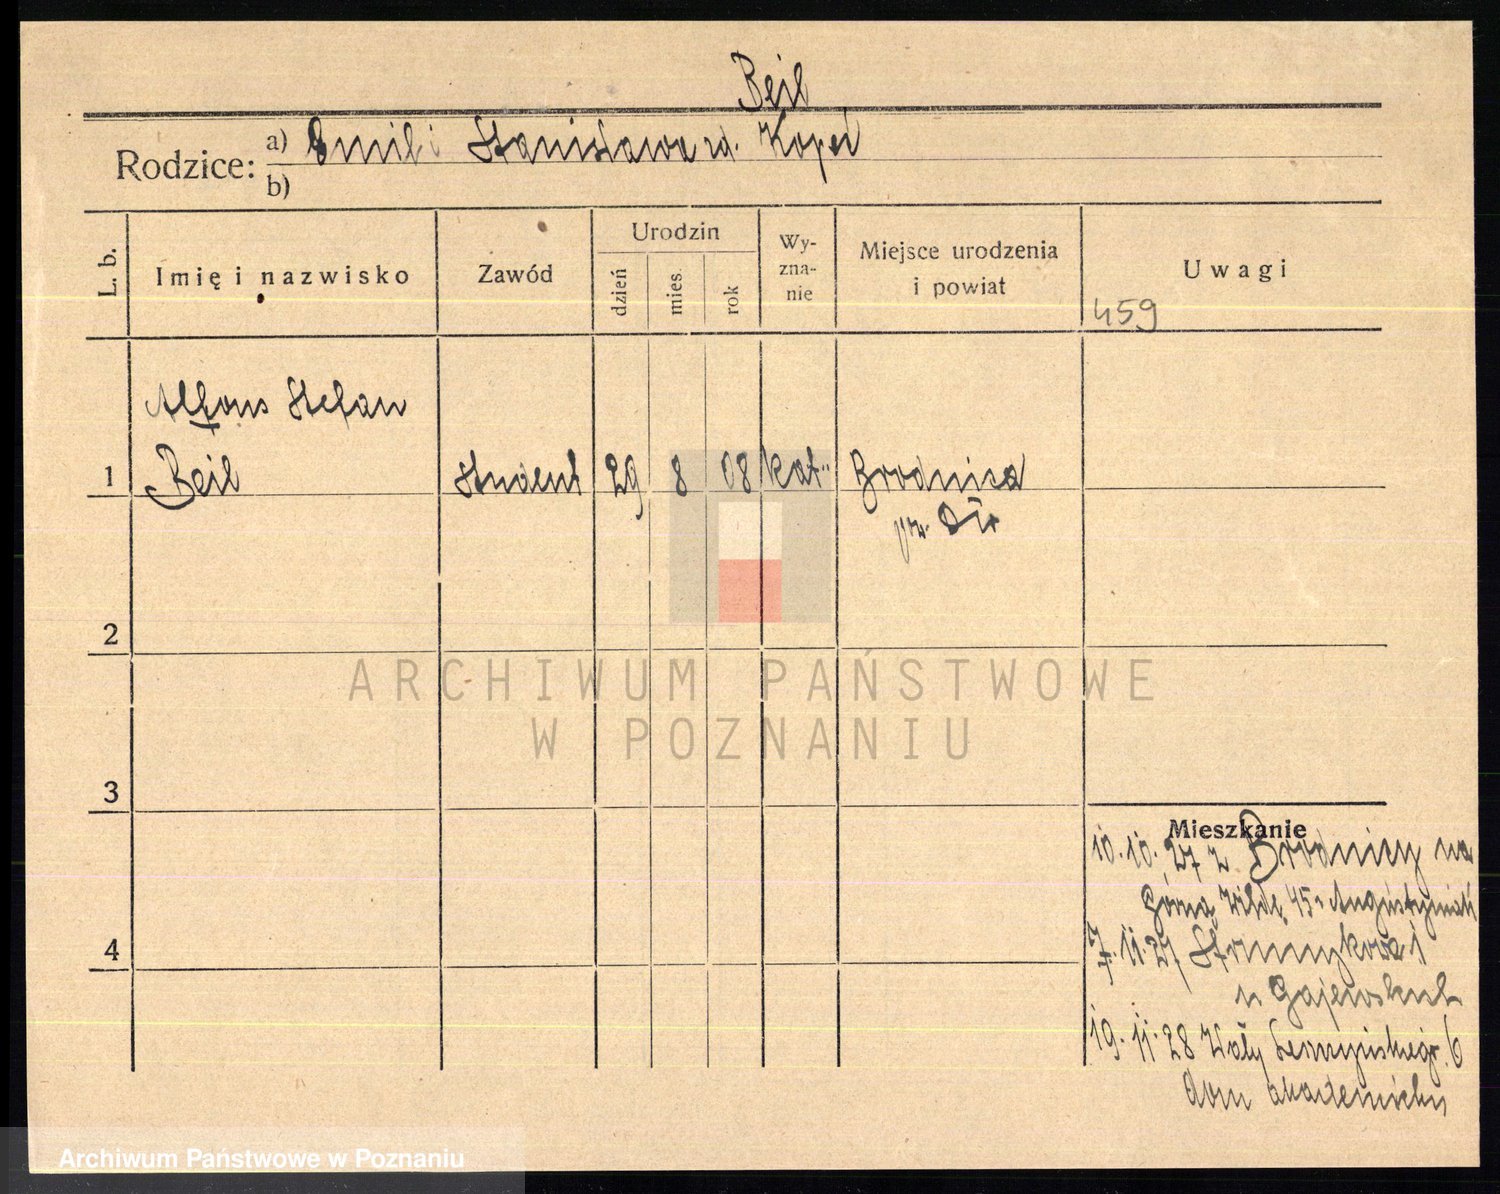 Beil
Rodzice: a) Emil i Stanisława zd. Kopeć
b)
L. b.
Imię i nazwisko
Zawód
Urodzin
dzień
mies.
rok
Wy-
zna-
nie
Miejsce urodzenia
i powiat
Uwagi
459
Alfons Stefan
1 Beil Student 29 8 08 kat. Brodnica
pow.
2
3
4
Mieszkanie
10.10.27 z Brodnicy na
Górna Wilda 45 Augustyniak
7.11.27 Strumykowa 1
u Gajewskich
19.11.28 Wały Leszczyńskiego 6
dom akademicki
ARCHIWUM PAŃSTWOWE
W POZNANIU
Archiwum Państwowe w Poznaniu